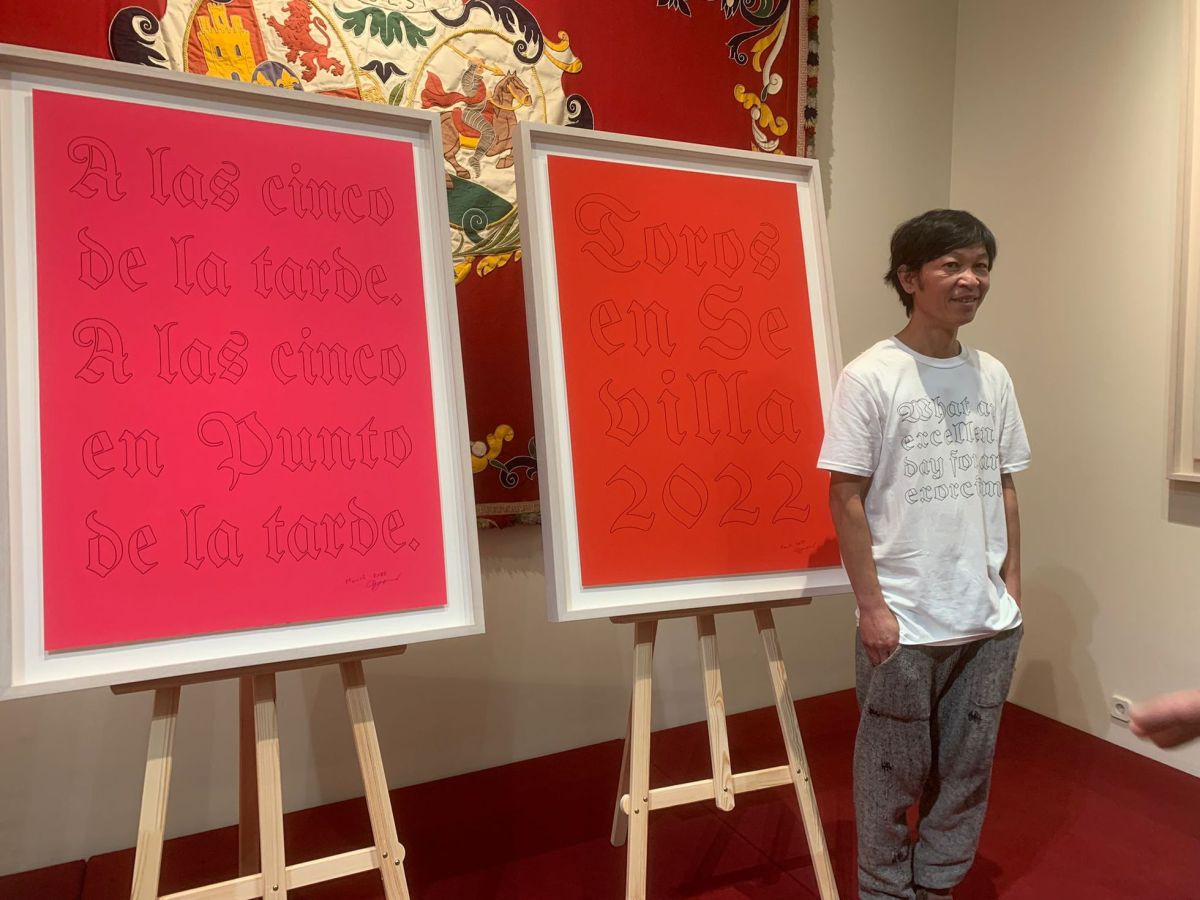 A las cinco
de la tarde.
A las cinco
en Punto
de la tarde.
Toros
en Se
villa
2022
What a
excellen
day for an
exorcism